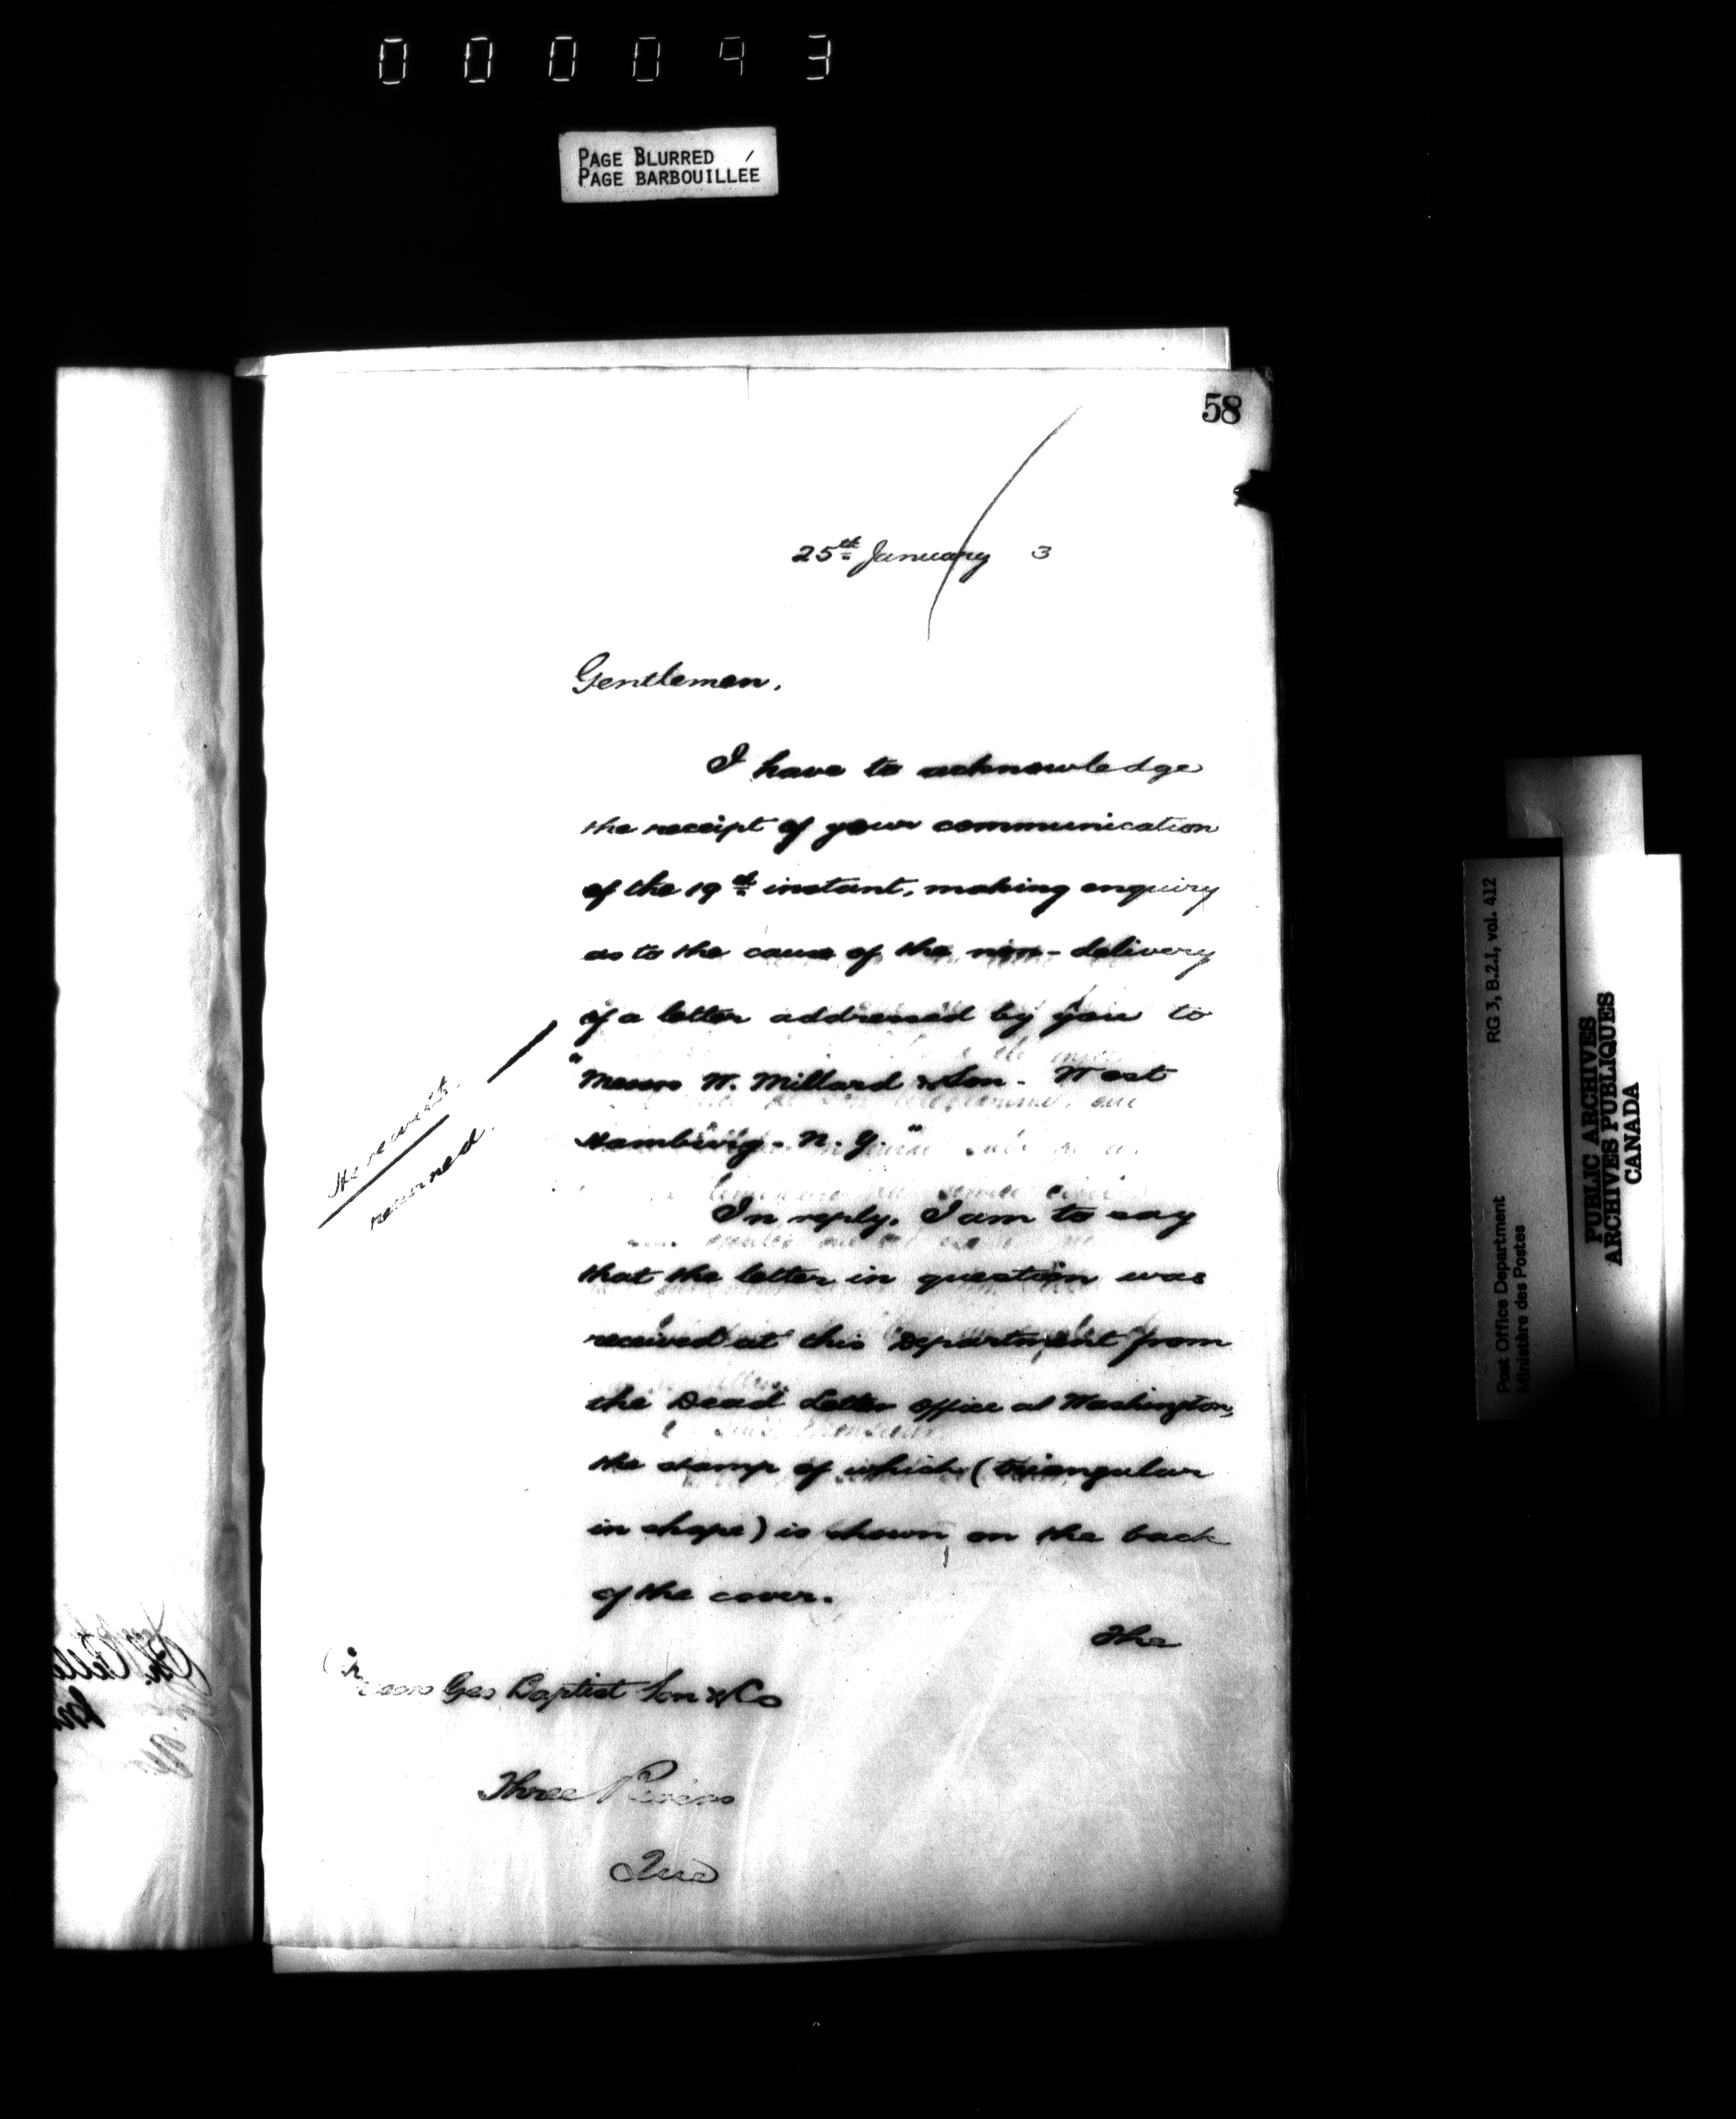 000093
PAGE BLURRED
PAGE BARBOUILLÉE
58
25th January 3
Gentlemen,
I have to acknowledge
the receipt of your communication
of the 19th instant, making enquiry
as to the cause of the non-delivery
of a letter addressed by you to
"Messrs W. Millard & Son - West
Hamburg - N. Y."
Herewith
returned.
In reply, I am to say
that the letter in question was
received at this Department from
the Dead Letter Office at Washington,
the stamp of which (triangular
in shape) is shown on the back
of the cover.
The
Messrs Geo Baptist Son & Co
Three Rivers
Que
RG 3, B.2.I, vol. 412
Post Office Department
Ministère des Postes
PUBLIC ARCHIVES
ARCHIVES PUBLIQUES
CANADA